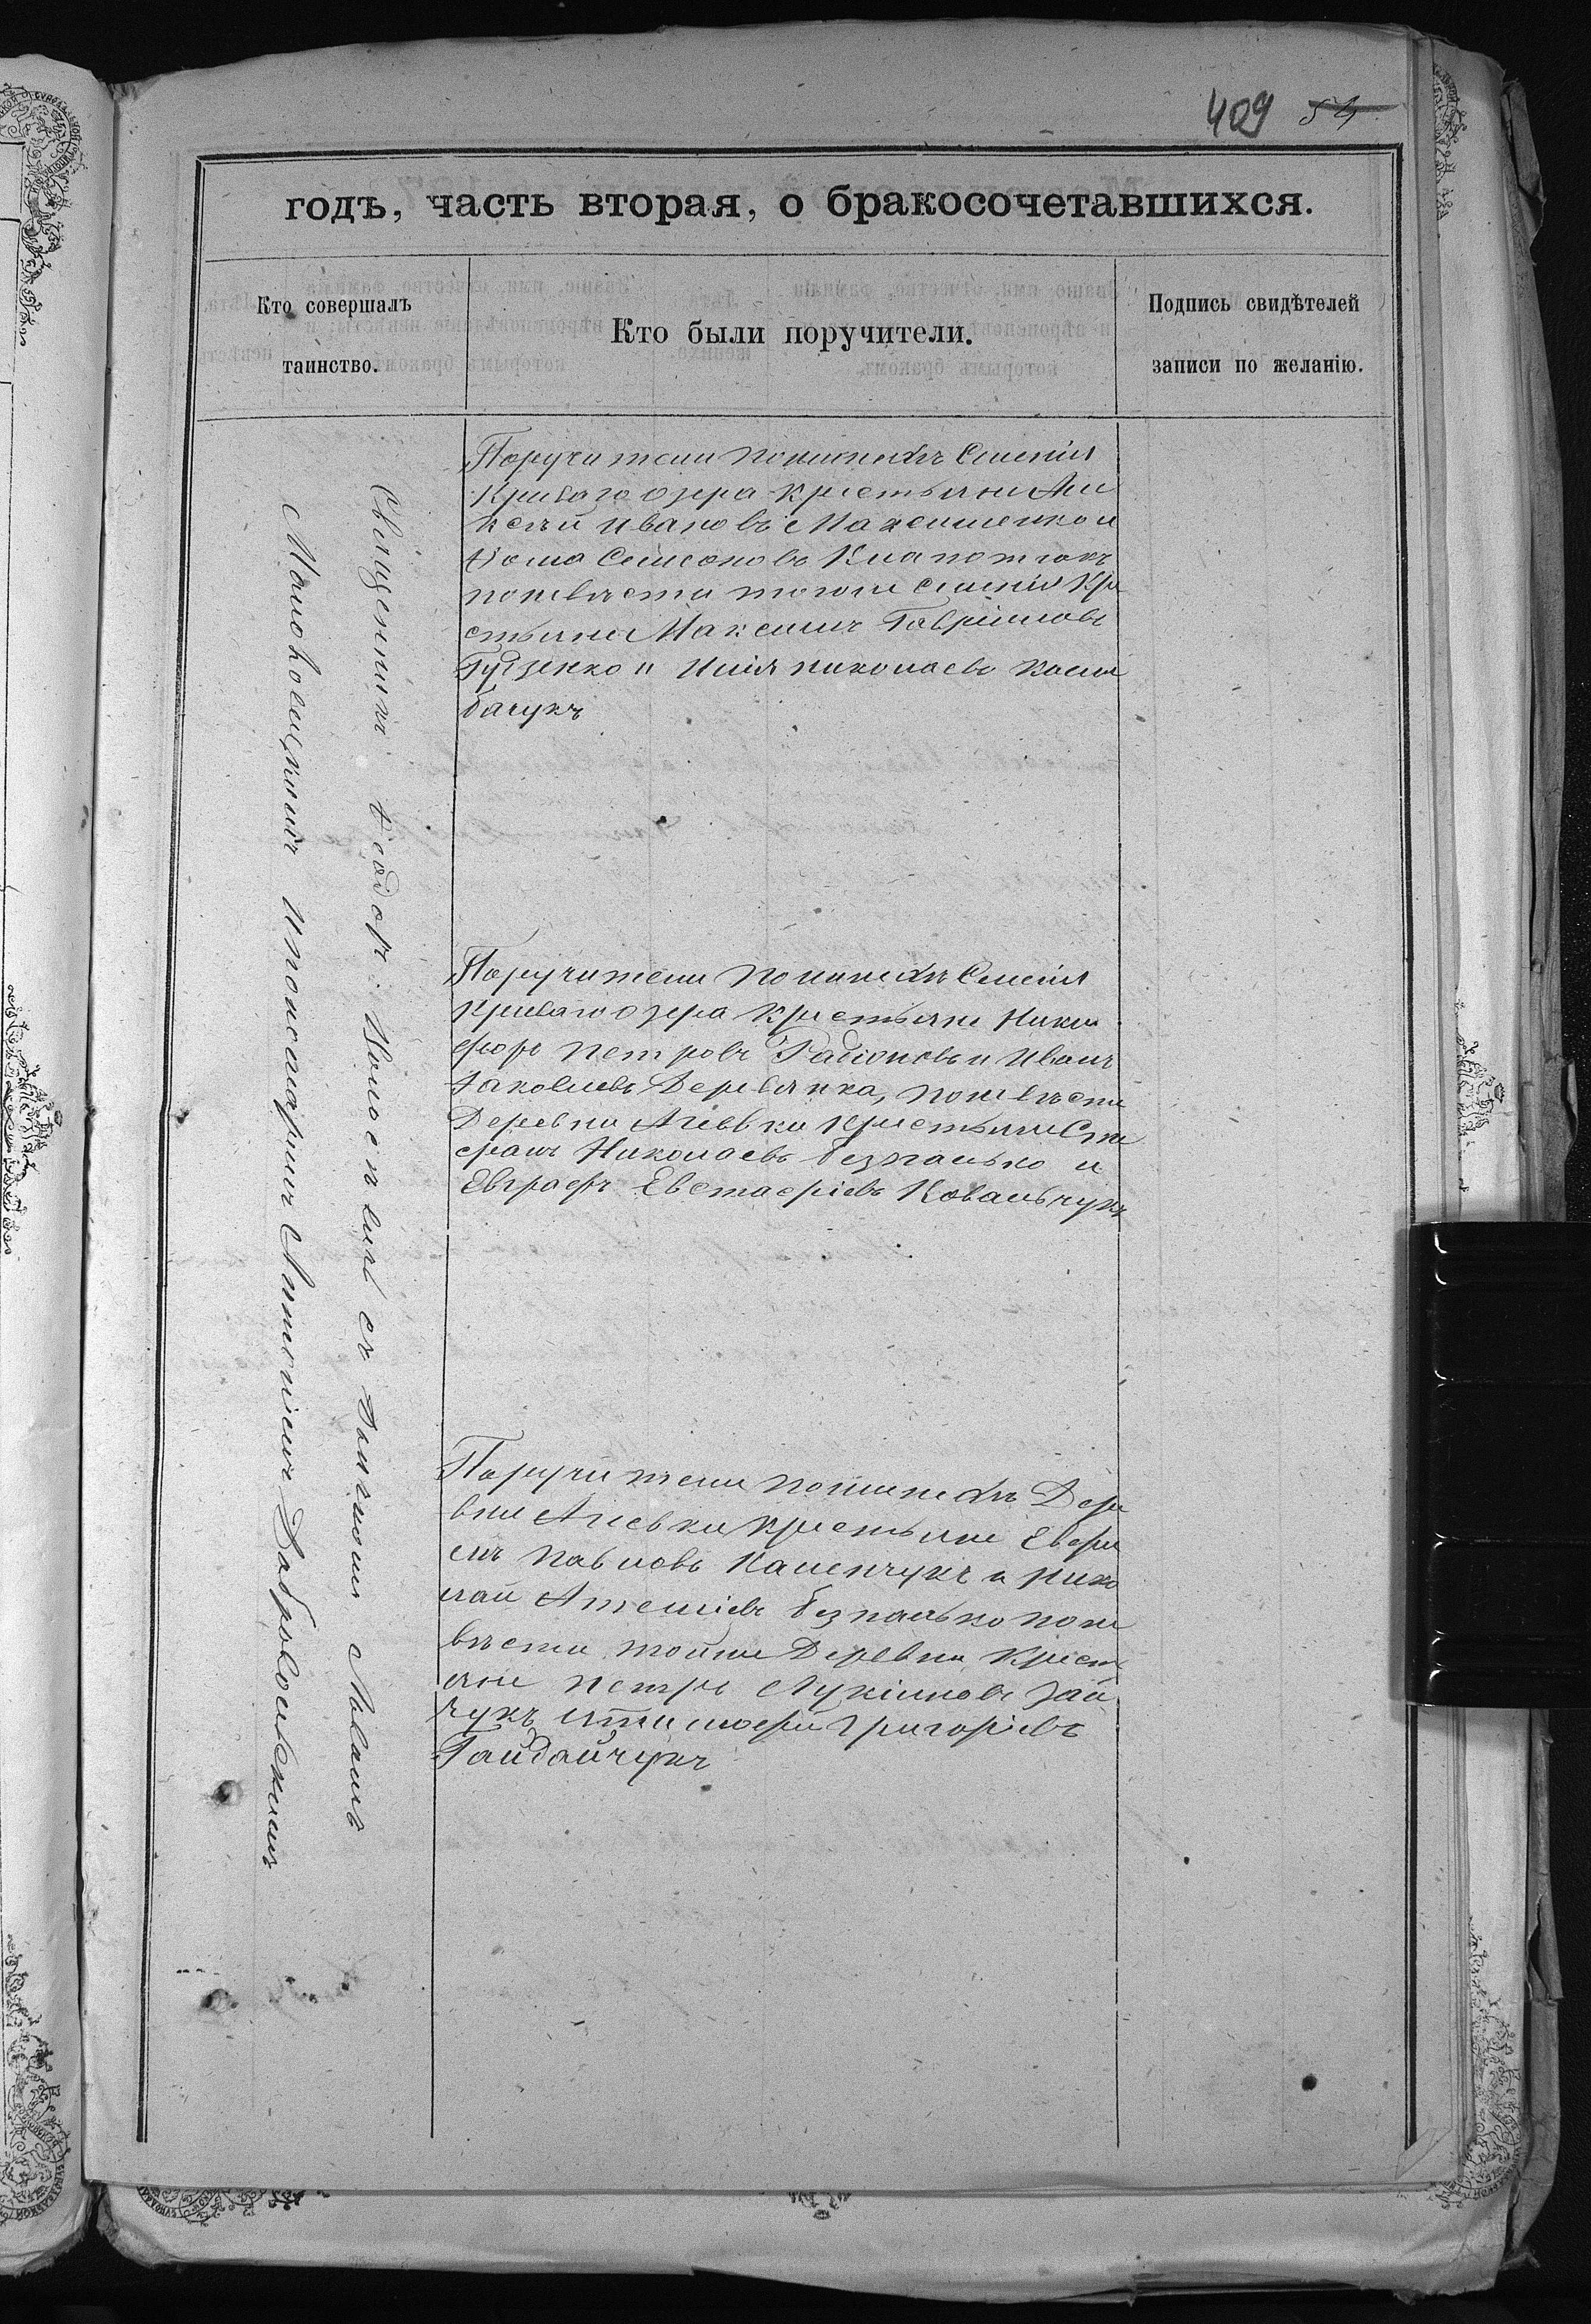 409 54
годъ, часть вторая, о бракосочетавшихся.
Кто совершалъ
таинство.
Кто были поручители.
Подпись свидѣтелей
записи по желанію.
Священникъ Ѳеодоръ съ Дьячкомъ
Антоніемъ Добровольскимъ
Поручители по женихѣ Селенія
Криваго озера Крестьяни Али
ксѣй Ивановъ Максименко и
Ѳома Семеоновъ
по невѣсти того же селенія Кре
стьяни Максимъ Гавріиловъ
Гудзенко и Илія Николаевъ
бачукъ
Поручители по женихѣ Селенія
Криваго озера Крестьяни Ники
форъ Петровъ Радіоновъ и Иванъ
Іаковлевъ Деревянка, по невѣсти
Деревни Агіевки Крестьяни Сте
фанъ Николаевъ безпалько и
Евграфъ Евстафіевъ Ковальчукъ
Поручители по женихѣ Дере
вни Агіевки Крестьяни Евфи
мъ Павловъ Каменчукъ и Нико
лай безпалько по не
вѣсти тойже Деревни Крест
яни Петръ Лукіановъ Зай
чукъ и Тимофей Григоріевъ
Гайдайчукъ